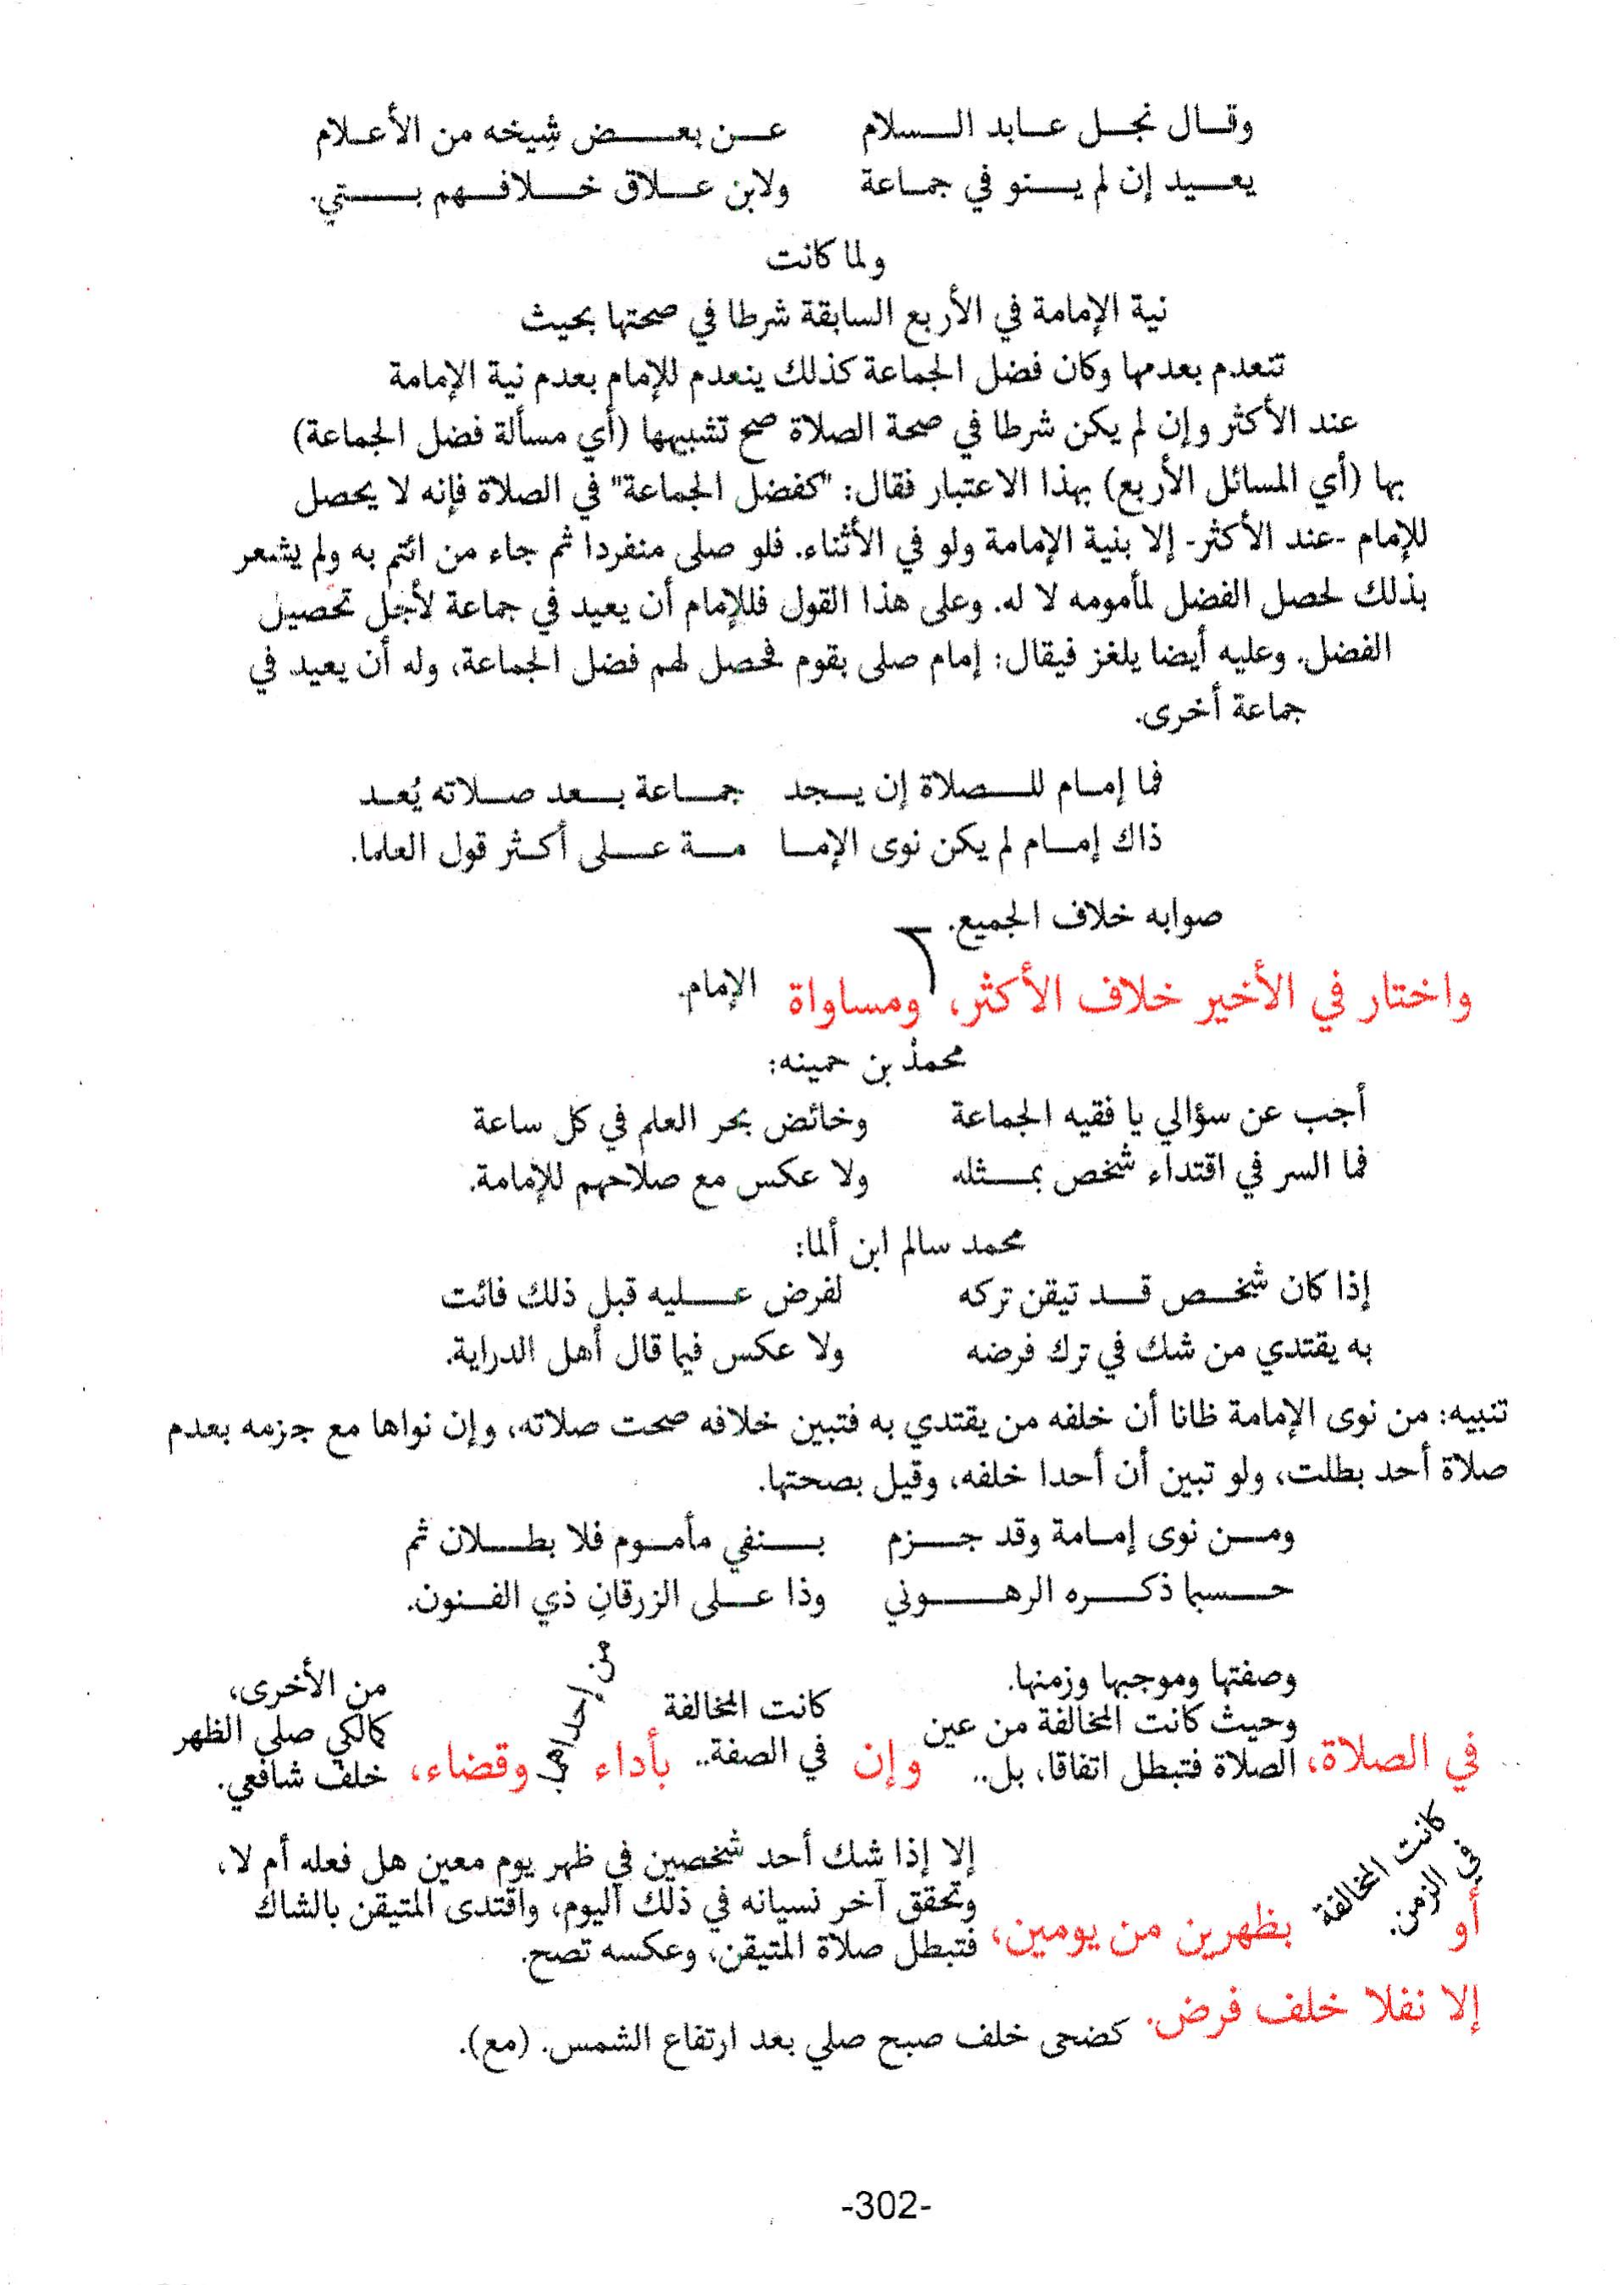 وقال نجل عابد السلام عن بعض شِيخه من الأعلام
يعيد إن لم ينو في جماعة ولابن علاق خلافهم بتي.
ولما كانت
نية الإمامة في الأربع السابقة شرطا في صحتها بحيث
تنعدم بعدمها وكان فضل الجماعة كذلك ينعدم للإمام بعدم نية الإمامة
عند الأكثر وإن لم يكن شرطا في صحة الصلاة صح تشبيهها (أي مسألة فضل الجماعة)
بها (أي المسائل الأربع) بهذا الاعتبار فقال: "كفضل الجماعة" في الصلاة فإنه لا يحصل
للإمام -عند الأكثر- إلا بنية الإمامة ولو في الأثناء. فلو صلى منفردا ثم جاء من ائتم به ولم يشعر
بذلك لحصل الفضل لمأمومه لا له. وعلى هذا القول فللإمام أن يعيد في جماعة لأجل تحصيل
الفضل. وعليه أيضا يلغز فيقال: إمام صلى بقوم فحصل لهم فضل الجماعة، وله أن يعيد في
جماعة أخرى.
فما إمام للصلاة إن يجد جماعة بعد صلاته يُعد
ذاك إمام لم يكن نوى الإما مة على أكثر قول العلما.
صوابه خلاف الجميع.
واختار في الأخير خلاف الأكثر، ومساواة الإمام.
محمذ بن حمينه:
أجب عن سؤالي يا فقيه الجماعة وخائض بحر العلم في كل ساعة
فما السر في اقتداء شخص بمثله ولا عكس مع صلاحهم للإمامة.
محمد سالم ابن ألما:
إذا كان شخص قد تيقن تركه لفرض عليه قبل ذلك فائت
به يقتدي من شك في ترك فرضه ولا عكس فيما قال أهل الدراية.
تنبيه: من نوى الإمامة ظانا أن خلفه من يقتدي به فتبين خلافه صحت صلاته، وإن نواها مع جزمه بعدم
صلاة أحد بطلت، ولو تبين أن أحدا خلفه، وقيل بصحتها.
ومن نوى إمامة وقد جزم بنفي مأموم فلا بطلان ثم
حسبما ذكره الرهوني وذا على الزرقانِ ذي الفنون.
في الصلاة،
وصفتها وموجبها وزمنها.
وحيث كانت المخالفة من عين
الصلاة فتبطل اتفاقا، بل..
وإن
كانت المخالفة
في الصفة..
بأداء
من إحداهما
وقضاء،
من الأخرى،
كمالكي صلى الظهر
خلف شافعي.
أو
كانت المخالفة
في الزمن.
بظهرين من يومين،
إلا إذا شك أحد شخصين في ظهر يوم معين هل فعله أم لا،
وتحقق آخر نسيانه في ذلك اليوم، واقتدى المتيقن بالشاك
فتبطل صلاة المتيقن، وعكسه تصح.
إلا نفلا خلف فرض. كضحى خلف صبح صلي بعد ارتفاع الشمس. (مع).
-302-